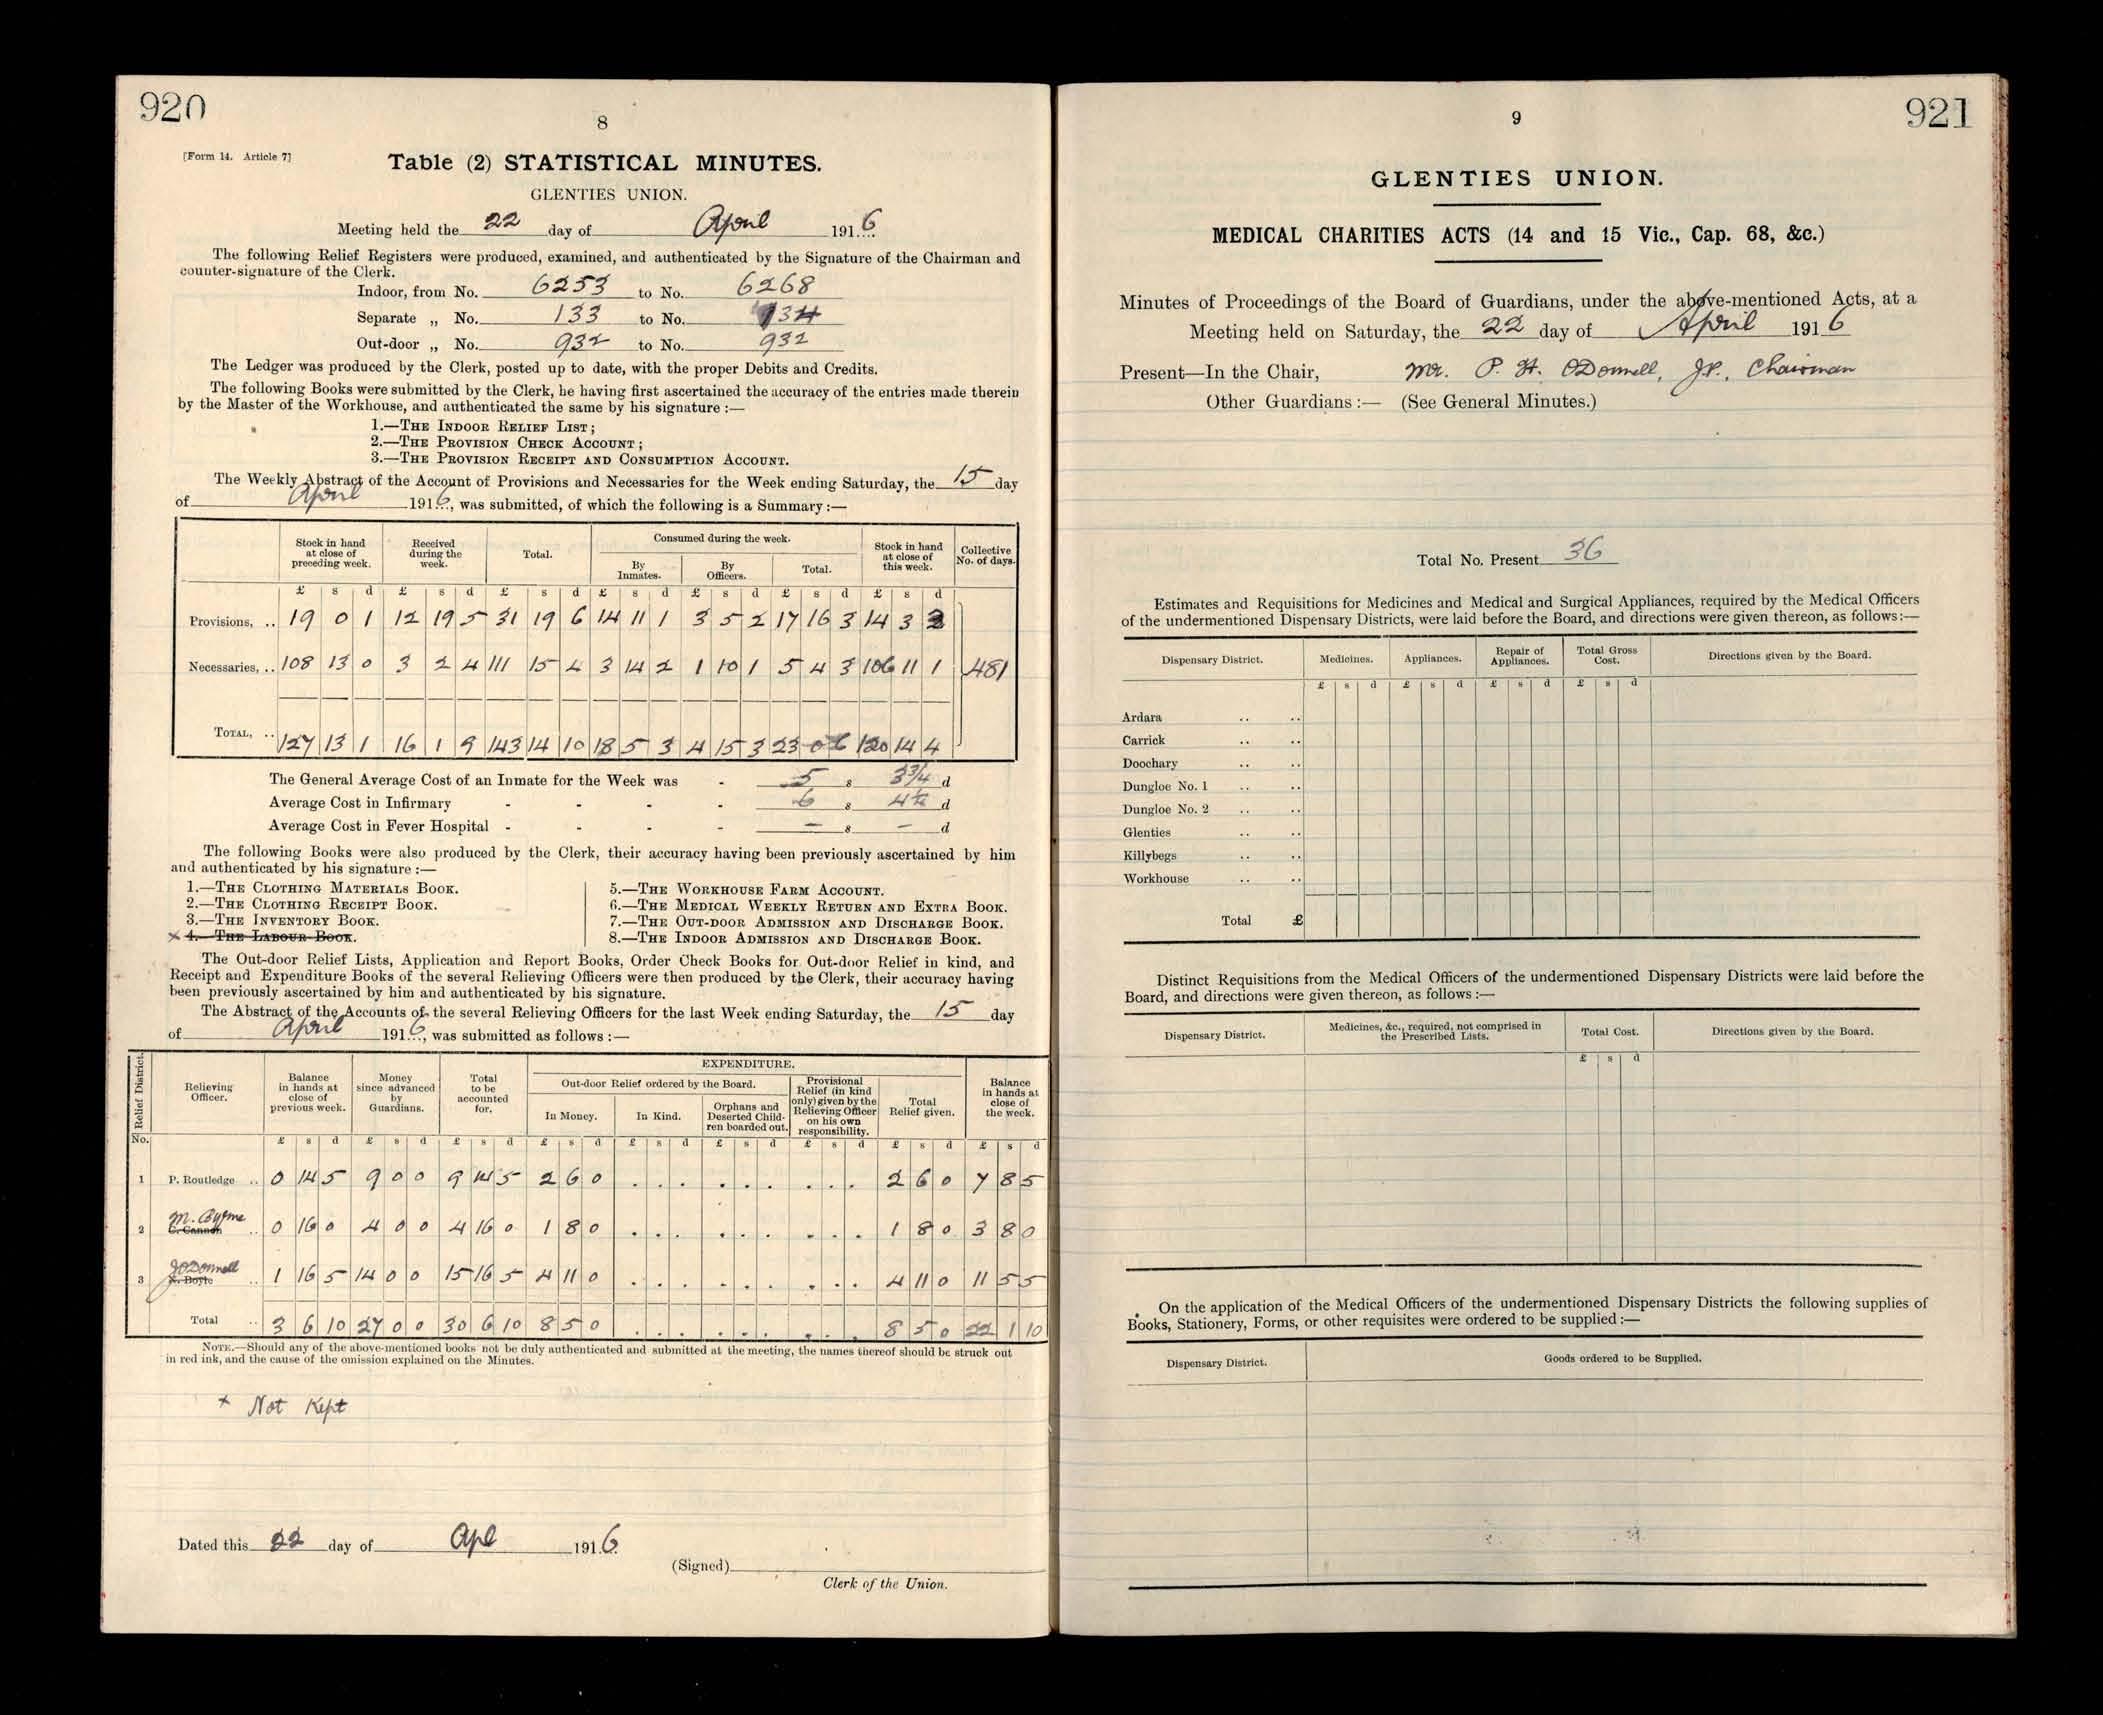 920
8
[Form 14. Article 7]
Table (2) STATISTICAL MINUTES.
GLENTIES UNION.
Meeting held the 22 day of April 1916
The following Relief Registers were produced, examined, and authenticated by the Signature of the Chairman and
counter-signature of the Clerk.
Indoor, from No. 6253 to No. 6268
Separate „ No. 133 to No. 134
Out-door „ No. 932 to No. 932
The Ledger was produced by the Clerk, posted up to date, with the proper Debits and Credits.
The following Books were submitted by the Clerk, he having first ascertained the accuracy of the entries made therein
by the Master of the Workhouse, and authenticated the same by his signature :—
1.—THE INDOOR RELIEF LIST ;
2.—THE PROVISION CHECK ACCOUNT ;
3.—THE PROVISION RECEIPT AND CONSUMPTION ACCOUNT.
The Weekly Abstract of the Account of Provisions and Necessaries for the Week ending Saturday, the 15 day
of April 1916, was submitted, of which the following is a Summary :—
Stock in hand at close of preceding week. Received during the week. Total. Consumed during the week. By Inmates. By Officers. Total. Stock in hand at close of this week. Collective No. of days.
£ s d £ s d £ s d £ s d £ s d £ s d £ s d
Provisions, .. 19 0 1 12 19 5 31 19 6 14 11 1 3 5 2 17 16 3 14 3 3
Necessaries, .. 108 13 0 3 2 4 111 15 4 3 14 2 1 10 1 5 4 3 106 11 1 481
TOTAL, .. 127 13 1 16 1 9 143 14 10 18 5 3 4 15 3 23 0 6 120 14 4
The General Average Cost of an Inmate for the Week was - 5 s 3¾ d
Average Cost in Infirmary - - - - 6 s d
Average Cost in Fever Hospital - - - - — s — d
The following Books were also produced by the Clerk, their accuracy having been previously ascertained by him
and authenticated by his signature :—
1.—THE CLOTHING MATERIALS BOOK.
2.—THE CLOTHING RECEIPT BOOK.
3.—THE INVENTORY BOOK.
× 4.—THE LABOUR BOOK.
5.—THE WORKHOUSE FARM ACCOUNT.
6.—THE MEDICAL WEEKLY RETURN AND EXTRA BOOK.
7.—THE OUT-DOOR ADMISSION AND DISCHARGE BOOK.
8.—THE INDOOR ADMISSION AND DISCHARGE BOOK.
The Out-door Relief Lists, Application and Report Books, Order Check Books for Out-door Relief in kind, and
Receipt and Expenditure Books of the several Relieving Officers were then produced by the Clerk, their accuracy having
been previously ascertained by him and authenticated by his signature.
The Abstract of the Accounts of the several Relieving Officers for the last Week ending Saturday, the 15 day
of April 1916, was submitted as follows :—
Relief District. No. Relieving Officer. Balance in hands at close of previous week. Money since advanced by Guardians. Total to be accounted for. EXPENDITURE. Out-door Relief ordered by the Board. In Money. In Kind. Orphans and Deserted Children boarded out. Provisional Relief (in kind only) given by the Relieving Officer on his own responsibility. Total Relief given. Balance in hands at close of the week.
£ s d £ s d £ s d £ s d £ s d £ s d £ s d £ s d £ s d
1 P. Routledge .. 0 14 5 9 0 0 9 14 5 2 6 0 . . . . . . . . . 2 6 0 7 8 5
2 M. Byrne C. Cannon .. 0 16 0 4 0 0 4 16 0 1 8 0 . . . . . . . . . 1 8 0 3 8 0
3 J O'Donnell N. Boyle .. 1 16 5 14 0 0 15 16 5 4 11 0 . . . . . . . . . 4 11 0 11 5 5
Total .. 3 6 10 27 0 0 30 6 10 8 5 0 . . . . . . . . . 8 5 0 22 1 10
NOTE.—Should any of the above-mentioned books not be duly authenticated and submitted at the meeting, the names thereof should be struck out
in red ink, and the cause of the omission explained on the Minutes.
× Not Kept
Dated this 22 day of Apl 1916.
(Signed)
Clerk of the Union.
921
9
GLENTIES UNION.
MEDICAL CHARITIES ACTS (14 and 15 Vic., Cap. 68, &c.)
Minutes of Proceedings of the Board of Guardians, under the above-mentioned Acts, at a
Meeting held on Saturday, the 22 day of April 1916
Present—In the Chair, Mr. P. H. O'Donnell, J.P., Chairman
Other Guardians :— (See General Minutes.)
Total No. Present 36
Estimates and Requisitions for Medicines and Medical and Surgical Appliances, required by the Medical Officers
of the undermentioned Dispensary Districts, were laid before the Board, and directions were given thereon, as follows:—
Dispensary District. Medicines. Appliances. Repair of Appliances. Total Gross Cost. Directions given by the Board.
£ s d £ s d £ s d £ s d
Ardara .. ..
Carrick .. ..
Doochary .. ..
Dungloe No. 1 .. ..
Dungloe No. 2 .. ..
Glenties .. ..
Killybegs .. ..
Workhouse .. ..
Total £
Distinct Requisitions from the Medical Officers of the undermentioned Dispensary Districts were laid before the
Board, and directions were given thereon, as follows :—
Dispensary District. Medicines, &c., required, not comprised in the Prescribed Lists. Total Cost. Directions given by the Board.
£ s d
On the application of the Medical Officers of the undermentioned Dispensary Districts the following supplies of
Books, Stationery, Forms, or other requisites were ordered to be supplied :—
Dispensary District. Goods ordered to be Supplied.